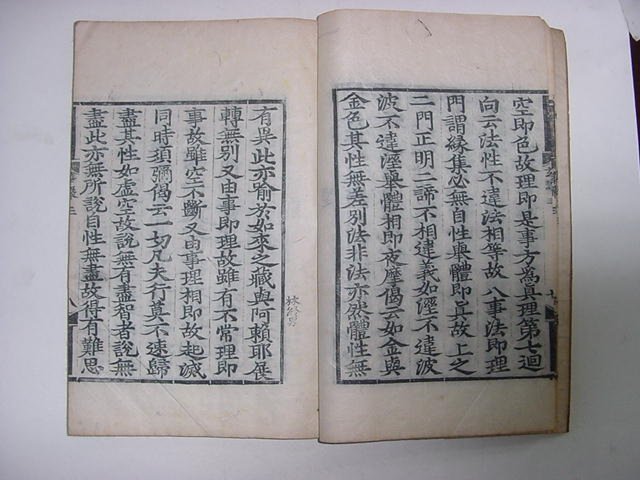 空即色故理即是事方為真理第七迴
向云法性不違法相等故八事法即理
門謂緣集必無自性舉體即真故上之
二門正明二諦不相違義如溼不違波
波不違溼舉體相即夜摩偈云如金與
金色其性無差別法非法亦然體性無
有異此亦喻於如來之藏與阿賴耶展
轉無別又由事即理故雖有不常理即
事故雖空不斷又由事理相即故起滅
同時須彌偈云一切凡夫行莫不速歸
盡其性如虛空故說無有盡智者說無
盡此亦無所說自性無盡故得有難思